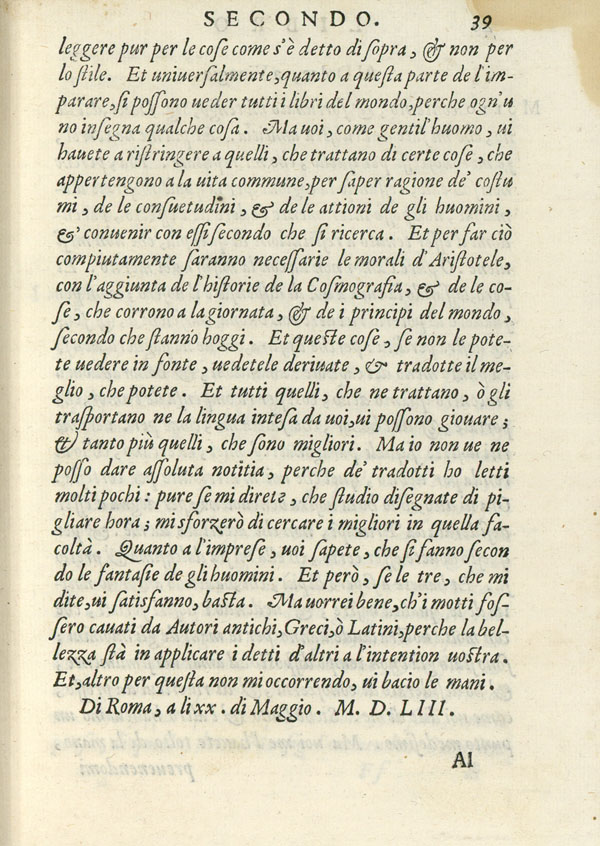 SECONDO. 39
leggere pur per le cose come s'è detto di sopra, & non per
lo stile. Et uniuersalmente, quanto a questa parte de l'im-
parare, si possono ueder tutti i libri del mondo, perche ogn'u
no insegna qualche cosa. Ma uoi, come gentil'huomo, ui
hauete a ristringere a quelli, che trattano di certe cose, che
appertengono a la uita commune, per saper ragione de' costu
mi, de le consuetudini, & de le attioni de gli huomini,
& conuenir con essi secondo che si ricerca. Et per far ciò
compiutamente saranno necessarie le morali d'Aristotele,
con l'aggiunta de l'historie de la Cosmografia, & de le co-
se, che corrono a la giornata, & de i principi del mondo,
secondo che stanno hoggi. Et queste cose, se non le pote-
te uedere in fonte, uedetele deriuate, & tradotte il me-
glio, che potete. Et tutti quelli, che ne trattano, ò gli
trasportano ne la lingua intesa da uoi, ui possono giouare;
& tanto più quelli, che sono migliori. Ma io non ue ne
posso dare assoluta notitia, perche de' tradotti ho letti
molti pochi: pure se mi direte, che studio disegnate di pi-
gliare hora; mi sforzerò di cercare i migliori in quella fa-
coltà. Quanto a l'imprese, uoi sapete, che si fanno secon
do le fantasie de gli huomini. Et però, se le tre, che mi
dite, ui satisfanno, basta. Ma uorrei bene, ch'i motti fos-
sero cauati da Autori antichi, Greci, ò Latini, perche la bel-
lezza stà in applicare i detti d'altri a l'intention uostra.
Et, altro per questa non mi occorrendo, ui bacio le mani.
Di Roma, a li xx. di Maggio. M. D. LIII.
Al